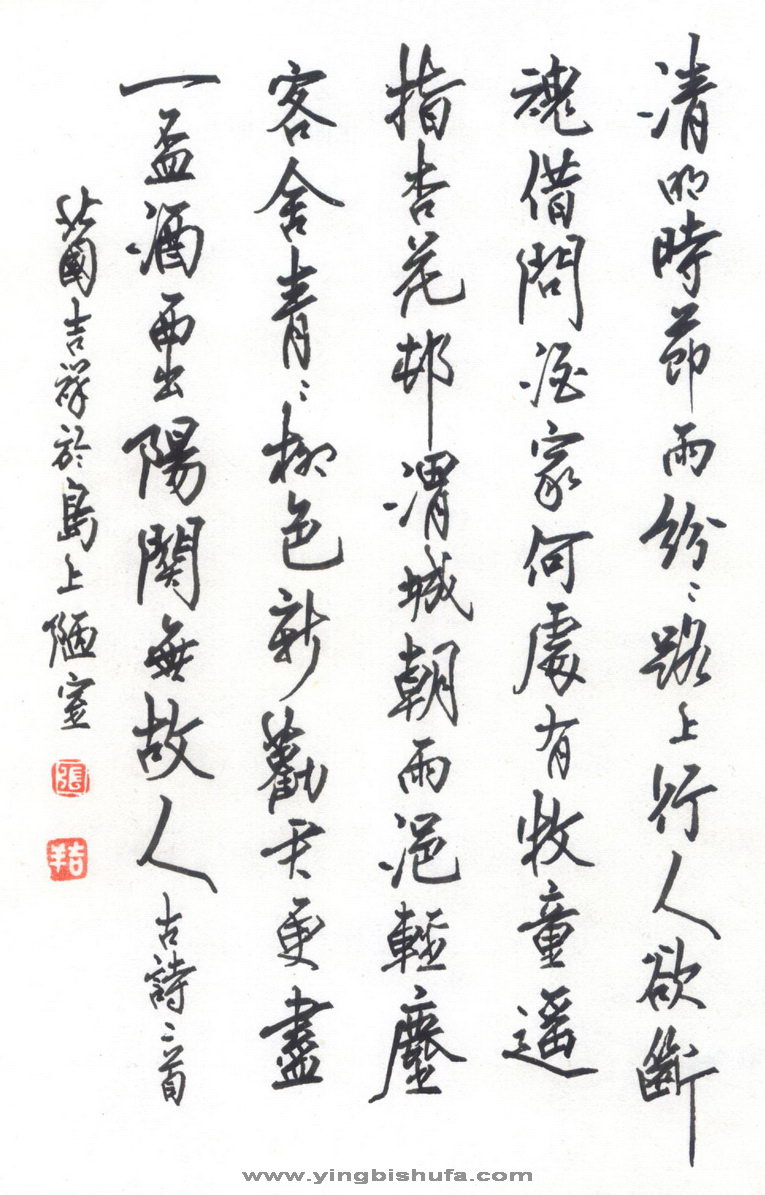 清明時節雨紛〻路上行人欲斷
魂借問酒家何處有牧童遥
指杏花邨渭城朝雨浥輕塵
客舍青〻柳色新勸君更盡
一盃酒西出陽關無故人古詩二首
北國吉祥於島上陋室
張
吉羊
www.yingbishufa.com